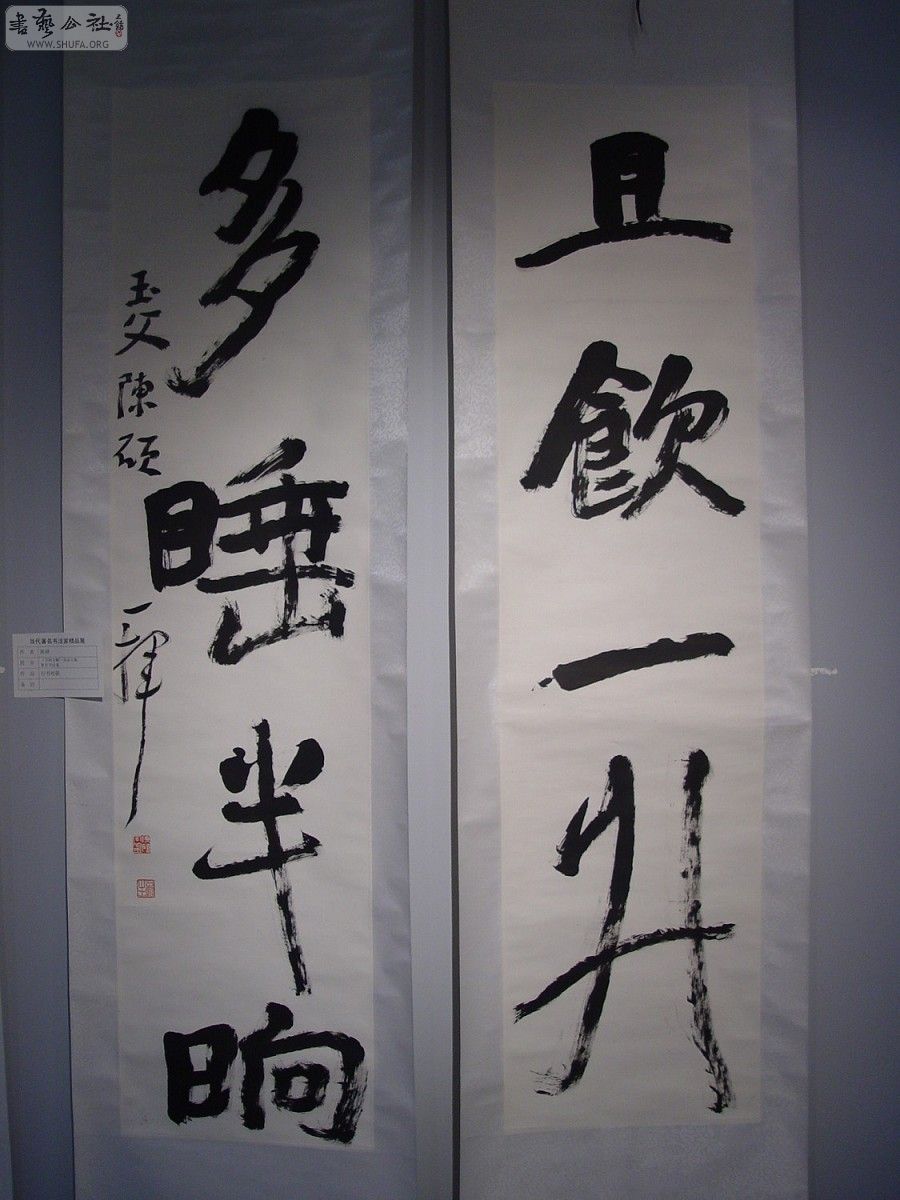 書藝公社
WWW.SHUFA.ORG
且飲一升
多睡半晌
玉父陳碩
一揮
当代著名书法家精品展